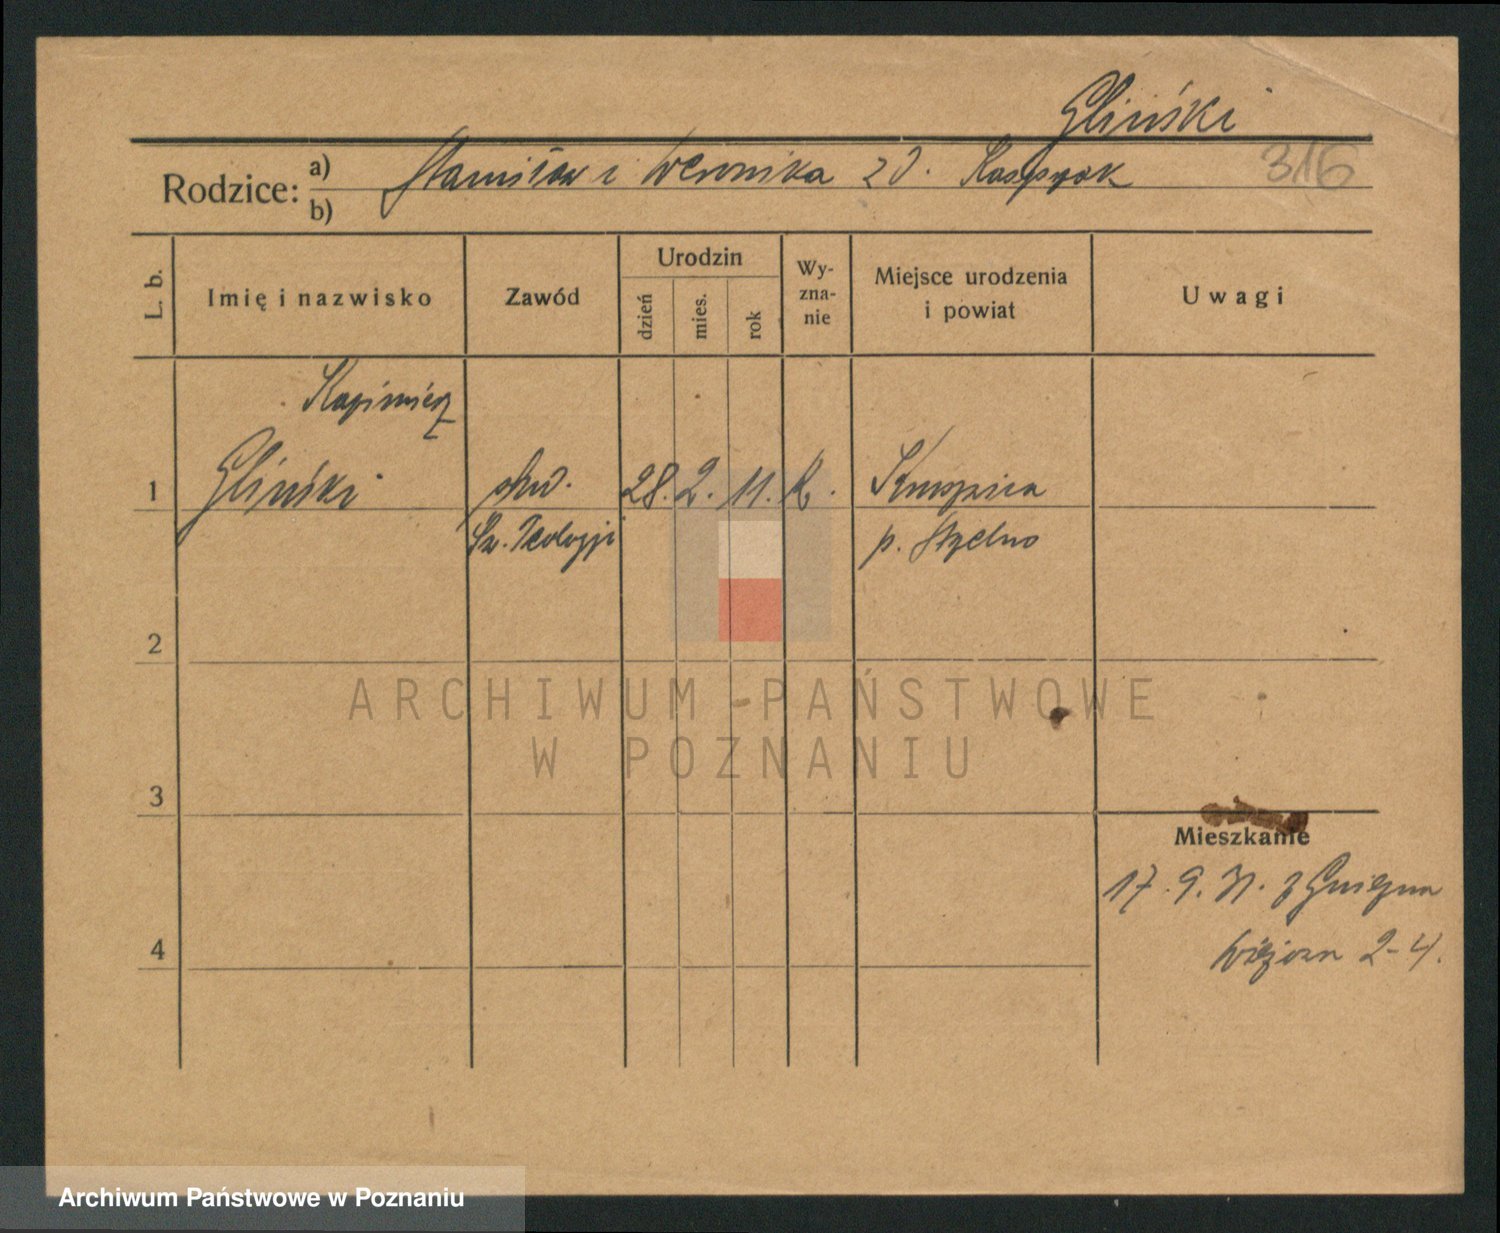 Gliński
316
Rodzice: a) b) Stanisław i Weronika zd. Kasprzak
L. b. Imię i nazwisko Zawód Urodzin dzień mies. rok Wy-zna-nie Miejsce urodzenia i powiat Uwagi
Kazimierz
1 Gliński stud. 28. 2. 11. k. Kruszwica
Św. Teologji p. Strzelno
2
ARCHIWUM PAŃSTWOWE
W POZNANIU
3
Mieszkanie
17. 9. 31. z Gniezna
4
Wieżowa 2-4.
Archiwum Państwowe w Poznaniu